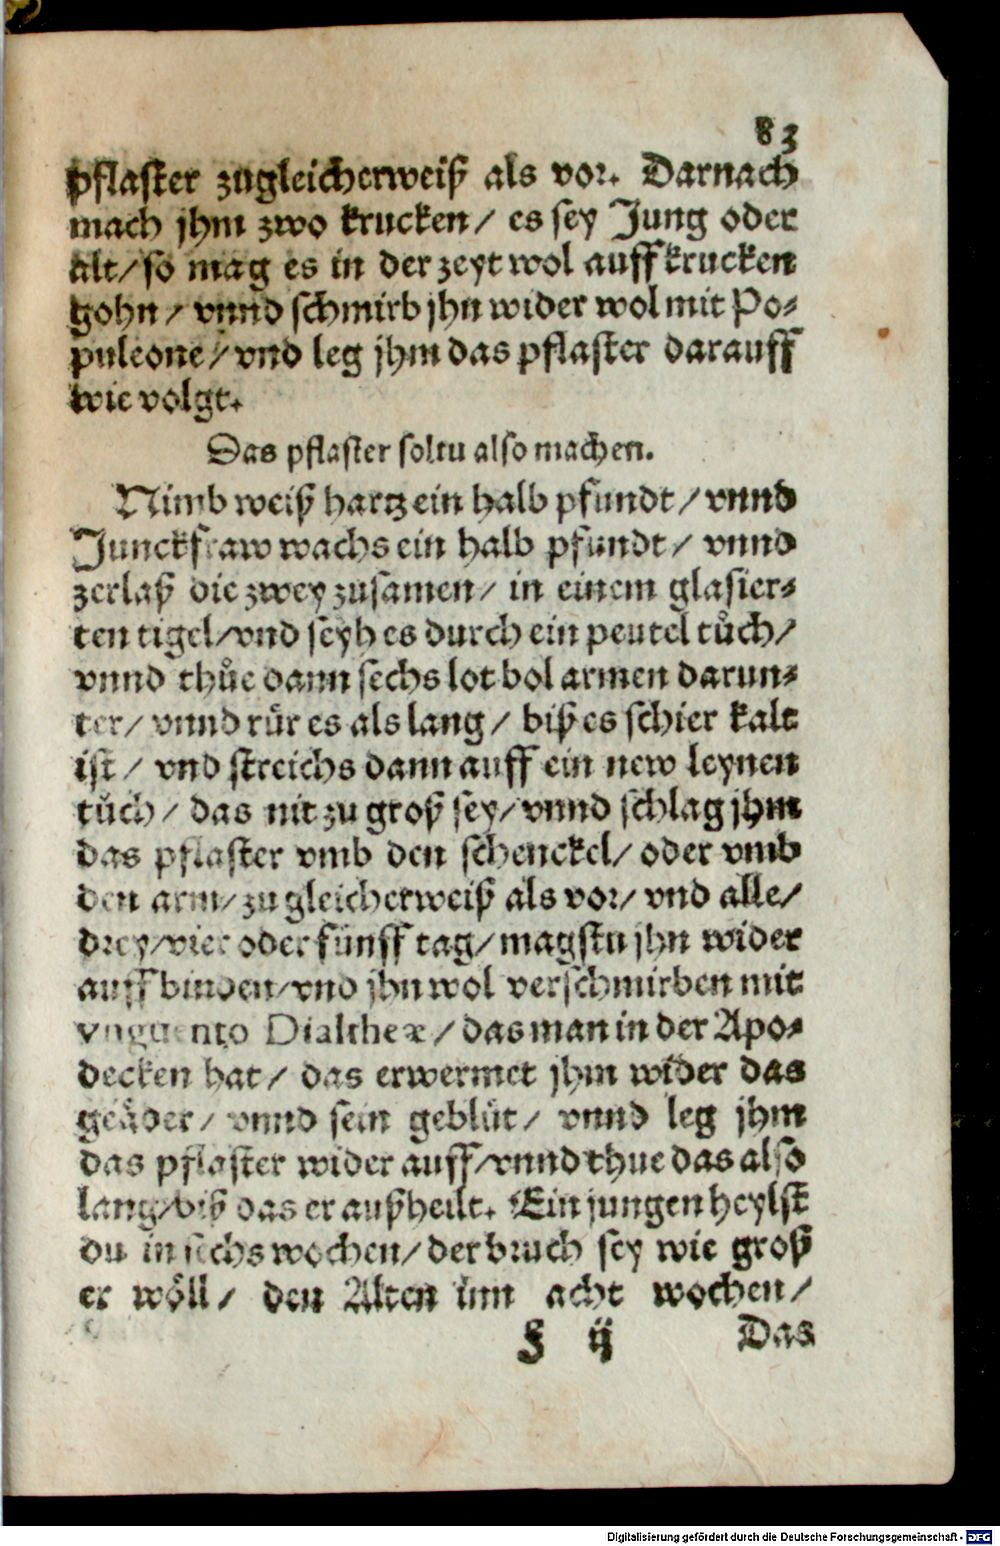 83
pflaster zůgleicherweiß als vor. Darnach
mach jhm zwo krucken / es sey Jung oder
alt / so mag es in der zeyt wol auff krucken
gohn / vnnd schmirb jhn wider wol mit Po⸗
puleone / vnd leg jhm das pflaster darauff
wie volgt.
Das pflaster soltu also machen.
Nimb weiß hartz ein halb pfundt / vnnd
Junckfraw wachs ein halb pfundt / vnnd
zerlaß die zwey zusamen / in einem glasier⸗
ten tigel / vnd seyh es durch ein peutel tůch /
vnnd thůe dann sechs lot bol armen darun⸗
ter / vnnd rür es als lang / biß es schier kalt
ist / vnd streichs dann auff ein new leynen
tůch / das nit zu groß sey / vnnd schlag jhm
das pflaster vmb den schenckel / oder vmb
den arm / zu gleicherweiß als vor / vnd alle /
drey / vier oder fünff tag / magstu jhn wider
auff binden / vnd jhn wol verschmirben mit
vnguento Dialtheæ / das man in der Apo⸗
decken hat / das erwermet jhm wider das
geäder / vnnd sein geblüt / vnnd leg jhm
das pflaster wider auff / vnnd thue das also
lang / biß das er außheilt. Ein jungen heylst
du in sechs wochen / der bruch sey wie groß
er wöll / den Alten inn acht wochen /
§ ij Das
Digitalisierung gefördert durch die Deutsche Forschungsgemeinschaft - DFG